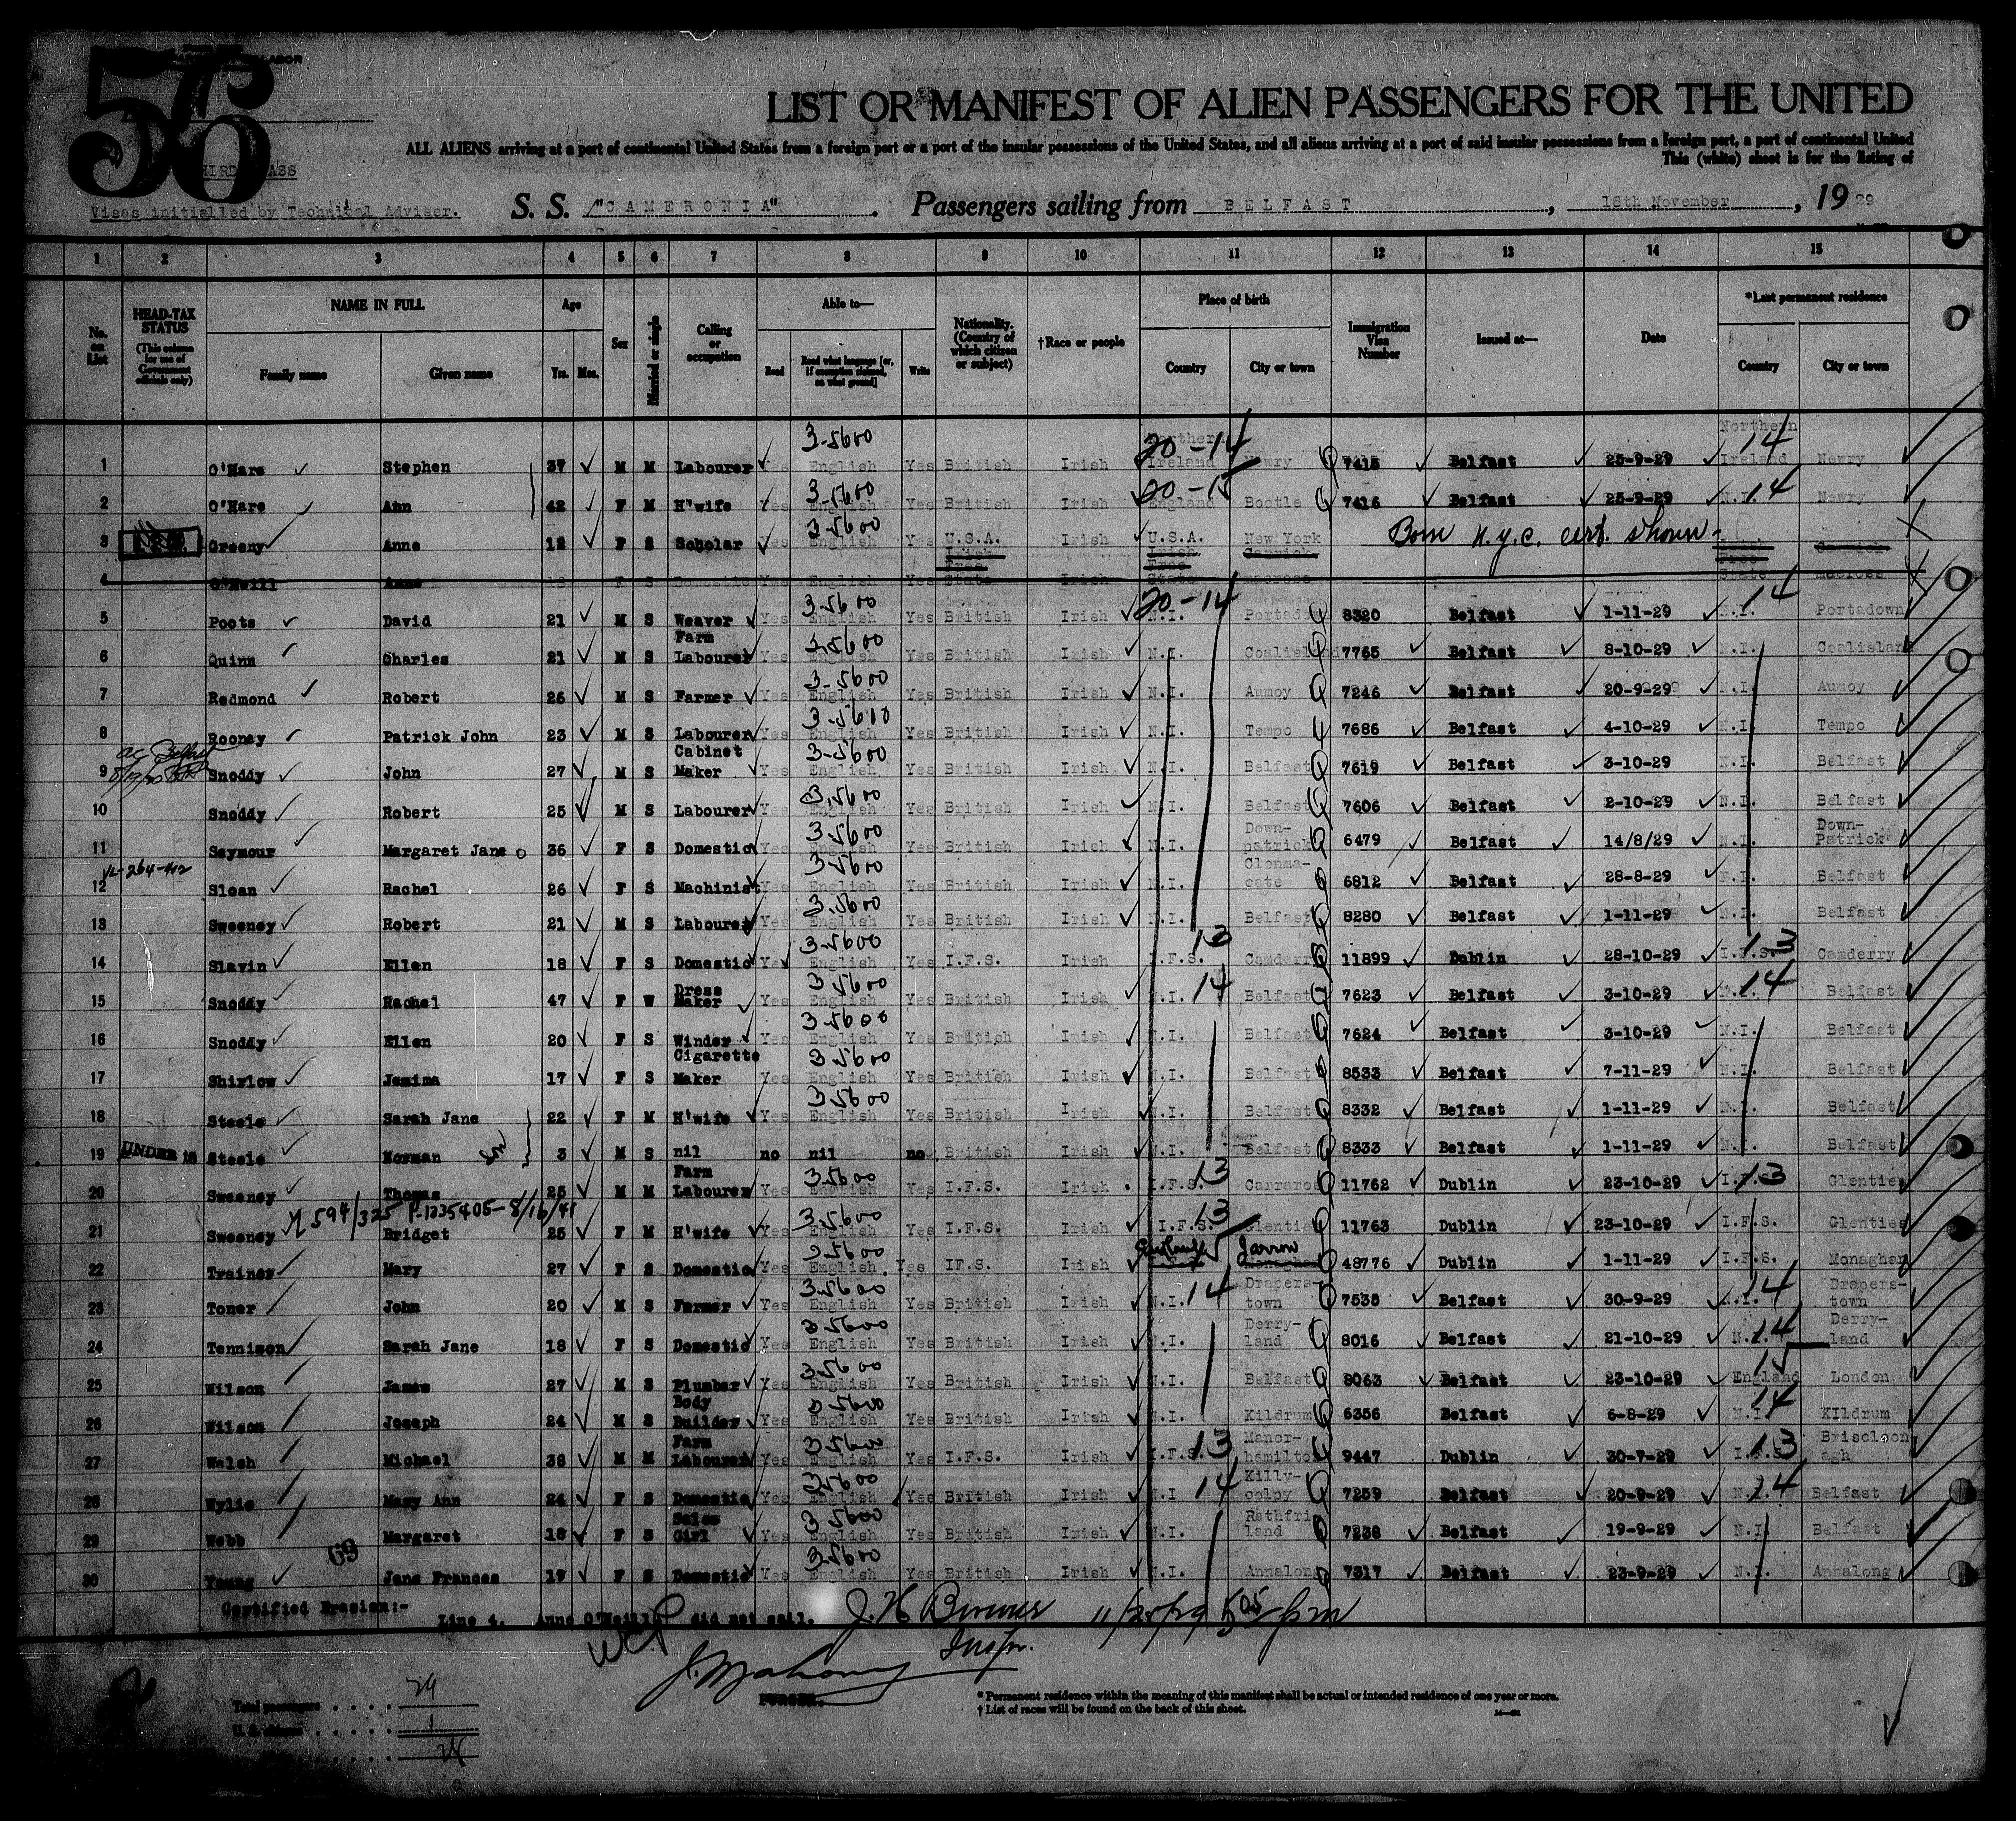 56
THIRD CLASS
LIST OR MANIFEST OF ALIEN PASSENGERS FOR THE UNITED
ALL ALIENS arriving at a port of continental United States from a foreign port or a port of the insular possessions of the United States, and all aliens arriving at a port of said insular possessions from a foreign port, a port of continental United
This (white) sheet is for the listing of
Visas initialled by Technical Adviser. S. S. "CAMERONIA" . Passengers sailing from BELFAST , 16th November , 19 29
1 2 3 4 5 6 7 8 9 10 11 12 13 14 15
No. on List HEAD-TAX STATUS (This column for use of Government officials only) NAME IN FULL Family name Given name Age Yrs. Mos. Sex Married or single Calling or occupation Able to— Read Read what language [or, if exemption claimed, on what ground] Write Nationality. (Country of which citizen or subject) †Race or people Place of birth Country City or town Immigration Visa Number Issued at— Date *Last permanent residence Country City or town
1 O'Hare Stephen 37 M M Labourer Yes English 3-5600 Yes British Irish Northern Ireland 20-14 Newry 7415 Belfast 25-9-29 Northern Ireland 14 Newry
2 O'Hare Ann 42 F M H'wife Yes English 3-5600 Yes British Irish England 20-15 Bootle 7416 Belfast 25-9-29 N.I. 14 Newry
3 Greeny Anne 12 F S Scholar Yes English 3-5600 Yes U.S.A. Irish Free State Irish U.S.A. Irish Free State New York Carrick macross Born N.Y.C. cert. shown - Irish Free State Carrick macross
4 O'Neill Anne F S Domestic Yes English Yes Irish
5 Poots David 21 M S Weaver Yes English 3-5600 Yes British Irish N.I. 20-14 Portad 8320 Belfast 1-11-29 N.I. 14 Portadown
6 Quinn Charles 21 M S Farm Labourer Yes English 3-5600 Yes British Irish N.I. Coalisland 7765 Belfast 8-10-29 N.I. Coalisland
7 Redmond Robert 26 M S Farmer Yes English 3-5600 Yes British Irish N.I. Aumoy 7246 Belfast 20-9-29 N.I. Aumoy
8 Rooney Patrick John 23 M S Labourer Yes English 3-5610 Yes British Irish N.I. Tempo 7686 Belfast 4-10-29 N.I. Tempo
9 Snoddy John 27 M S Cabinet Maker Yes English 3-5600 Yes British Irish N.I. Belfast 7619 Belfast 3-10-29 N.I. Belfast
10 Snoddy Robert 25 M S Labourer Yes English 3-5600 Yes British Irish N.I. Belfast 7606 Belfast 2-10-29 N.I. Belfast
11 Seymour Margaret Jane 36 F S Domestic Yes English 3-5600 Yes British Irish N.I. Down-patrick 6479 Belfast 14/8/29 N.I. Down-Patrick
12 Sloan Rachel 26 F S Machinist Yes English 3-5600 Yes British Irish N.I. Clonma-cate 6812 Belfast 28-8-29 N.I. Belfast
13 Sweeney Robert 21 M S Labourer Yes English 3-5600 Yes British Irish N.I. Belfast 8280 Belfast 1-11-29 N.I. Belfast
14 Slavin Ellen 18 F S Domestic Yes English 3-5600 Yes I.F.S. Irish I.F.S. 13 Camderry 11899 Dublin 28-10-29 I.F.S. 13 Camderry
15 Snoddy Rachel 47 F W Dress Maker Yes English 3-5600 Yes British Irish N.I. 14 Belfast 7623 Belfast 3-10-29 N.I. 14 Belfast
16 Snoddy Ellen 20 F S Winder Yes English 3-5600 Yes British Irish N.I. Belfast 7624 Belfast 3-10-29 N.I. Belfast
17 Shirlow Jemima 17 F S Cigarette Maker Yes English 3-5600 Yes British Irish N.I. Belfast 8533 Belfast 7-11-29 N.I. Belfast
18 Steele Sarah Jane 22 F M H'wife Yes English 3-5600 Yes British Irish N.I. Belfast 8332 Belfast 1-11-29 N.I. Belfast
19 UNDER 16 Steele Norman son 3 M S nil no nil no British Irish N.I. Belfast 8333 Belfast 1-11-29 N.I. Belfast
20 Sweeney Thomas 25 M M Farm Labourer Yes English 3-5600 Yes I.F.S. Irish I.F.S. 13 Carraroe 11762 Dublin 23-10-29 I.F.S. 13 Glenties
21 Sweeney Bridget 25 F M H'wife Yes English 3-5600 Yes I.F.S. Irish I.F.S. 13 Glenties 11763 Dublin 23-10-29 I.F.S. Glenties
22 Trainer Mary 27 F S Domestic Yes English 3-5600 Yes IF.S. Irish Jarrow Monaghan 48776 Dublin 1-11-29 I.F.S. Monaghan
23 Toner John 20 M S Farmer Yes English 3-5600 Yes British Irish N.I. 14 Drapers-town 7535 Belfast 30-9-29 N.I. 14 Drapers-town
24 Tennison Sarah Jane 18 F S Domestic Yes English 3-5600 Yes British Irish N.I. Derry-land 8016 Belfast 21-10-29 N.I. 14 Derry-land
25 Wilson James 27 M S Plumber Yes English 3-5600 Yes British Irish N.I. Belfast 8063 Belfast 23-10-29 England 15 London
26 Wilson Joseph 24 M S Body Builder Yes English 3-5600 Yes British Irish N.I. Kildrum 6356 Belfast 6-8-29 N.I. 14 KIldrum
27 Walsh Michael 38 M M Farm Labourer Yes English 3-5600 Yes I.F.S. Irish I.F.S. 13 Manor-hamilton 9447 Dublin 30-7-29 I.F.S. 13 Briscloon agh
28 Wylie Mary Ann 24 F S Domestic Yes English 3-5600 Yes British Irish N.I 14 Killy-colpy 7259 Belfast 20-9-29 N.I. 14 Belfast
29 Webb Margaret 18 F S Sales Girl Yes English 3-5600 Yes British Irish N.I. Rathfri land 7238 Belfast 19-9-29 N.I. Belfast
30 Young Jane Frances 17 F S Domestic Yes English 3-5600 Yes British Irish N.I. Annalong 7317 Belfast 23-9-29 N.I. Annalong
69
Certified Erasion:-
Line 4. Anne O'Neill did not sail.
Inspr.
J. Mahony
PURSER.
Total passengers . . . . 29
U. S. citizens . . . . . 1
28
* Permanent residence within the meaning of this manifest shall be actual or intended residence of one year or more.
† List of races will be found on the back of this sheet.